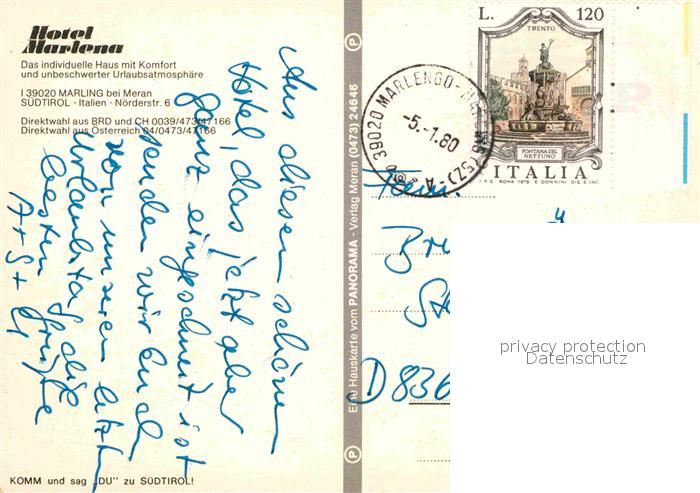 Hotel
Marlena
Das individuelle Haus mit Komfort
und unbeschwerter Urlaubsatmosphäre
I 39020 MARLING bei Meran
SÜDTIROL - Italien - Nörderstr. 6
Direktwahl aus BRD und CH 0039/473/47166
Direktwahl aus Österreich 04/0473/47166
Aus diesem schönen
Hotel, das jetzt aber
ganz eingeschneit ist
senden wir Euch
von unseren letzten
Urlaubstag die
besten Grüße
KOMM und sag „DU" zu SÜDTIROL!
Eine Hauskarte vom PANORMA - Verlag Meran (0473) 24646
L. 120
TRENTO
FONTANA DEL
NETTUNO
ITALIA
I.P.S. ROMA 1978 E. DONNINI DIS. E INC.
39020 MARLENGO
-5.-1.80
Fam.
D 836
privacy protection
Datenschutz